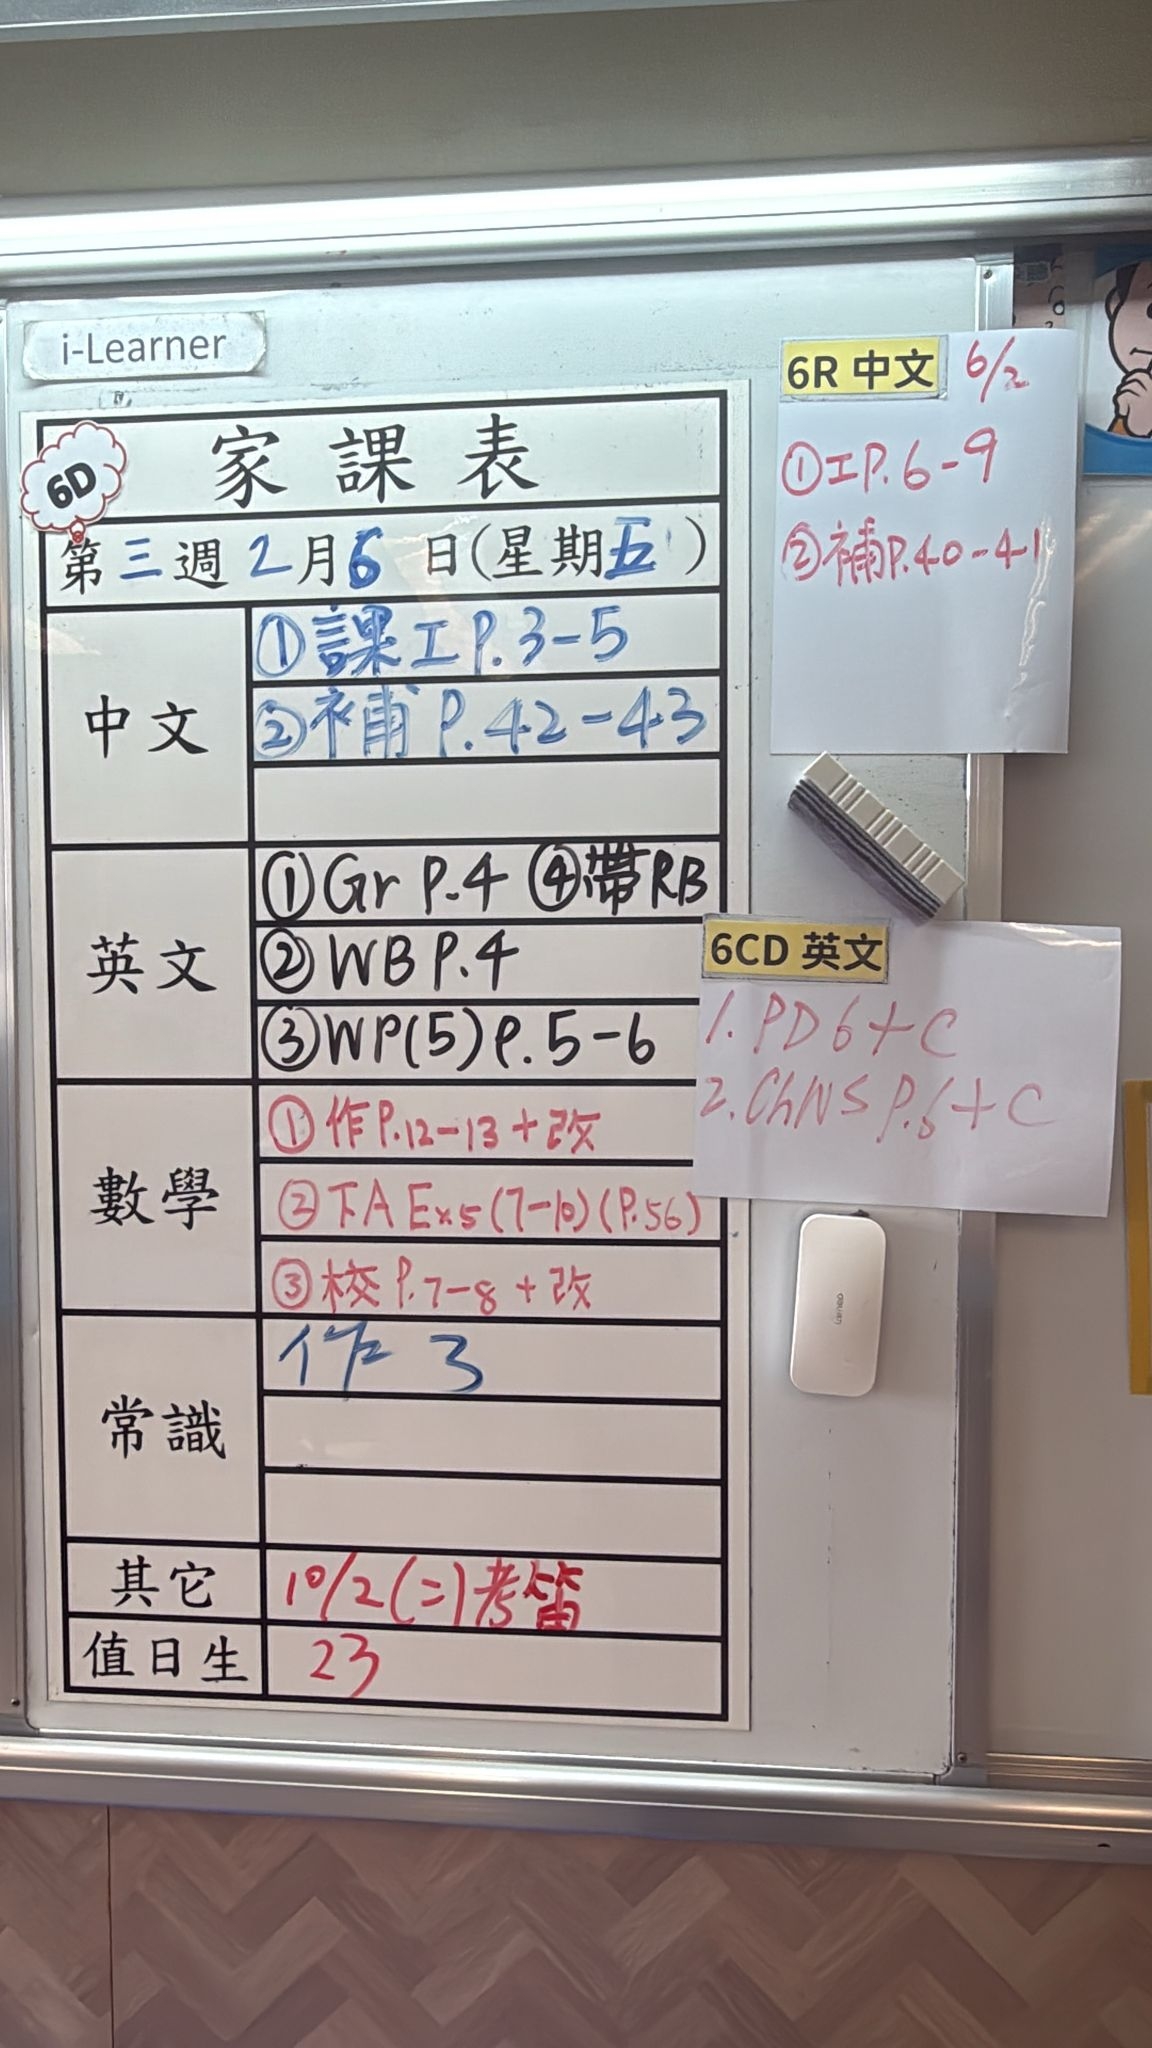 i-Learner
6D
家課表
第三週2月6日(星期五)
中文
①課工P.3-5
②補P.42-43
英文
①Gr P.4 ④帶RB
②WB P.4
③WP(5) P.5-6
數學
①作P.12-13+改
②TA Ex5(7-10)(P.56)
③校P.7-8+改
常識
作 3
其它
10/2(二)考笛
值日生
23
6R 中文 6/2
①工P.6-9
②補P.40-41
6CD 英文
1. PD6+C
2. ChNS P.6+C